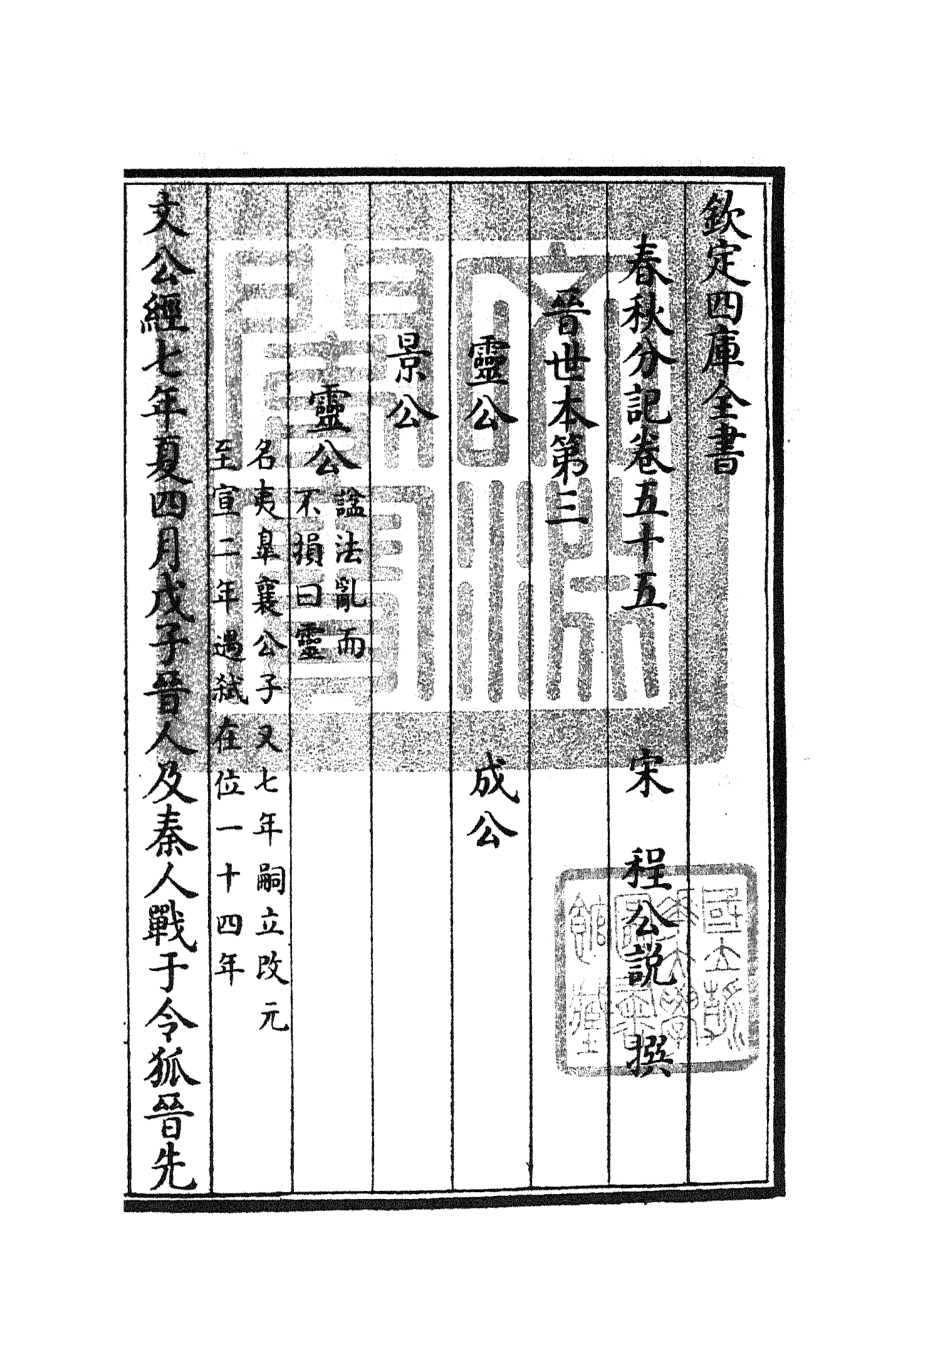 欽定四庫全書
春秋分記卷五十五 宋 程公説 撰
晉世本第三
靈公 成公
景公
靈公 諡法亂而不損曰靈
名夷臯襄公子文七年嗣立改元
至宣二年遇弑在位一十四年
文公經七年夏四月戊子晉人及秦人戰于令狐晉先